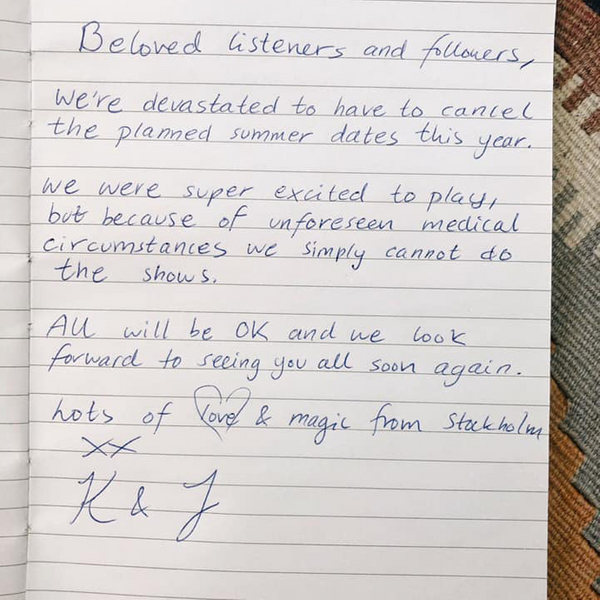 Beloved listeners and followers,
We're devastated to have to cancel
the planned summer dates this year.
We were super excited to play,
but because of unforeseen medical
circumstances we simply cannot do
the shows.
All will be OK and we look
forward to seeing you all soon again.
Lots of love & magic from Stockholm
XX
K & J